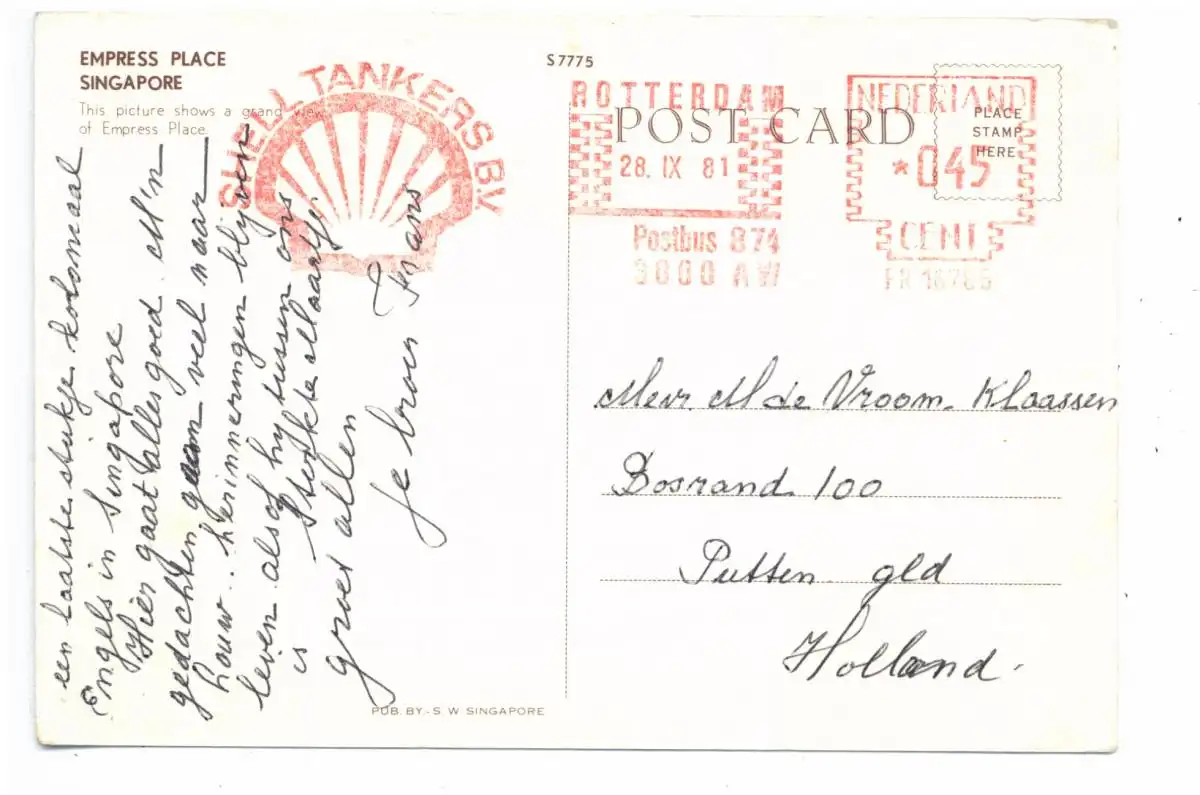 EMPRESS PLACE
SINGAPORE
This picture shows a grand view
of Empress Place.
SHELL TANKERS B.V.
S7775
ROTTERDAM
28. IX 81
Postbus 874
3000 AW
POST CARD
NEDERLAND
*045
CENT
FR 16785
PLACE
STAMP
HERE
een laatste stukje koloniaal
Engels in Singapore
Hier gaat alles goed. M'n
gedachten gaan veel naar
houw.. herinneringen blijven
leven alsof hy tussen ons
is Sterkte Maartje
groet allen
je broer Frans
Mevr. M de Vroom. Klaassen
Bosrand 100
Putten gld
Holland.
PUB. BY.- S. W SINGAPORE